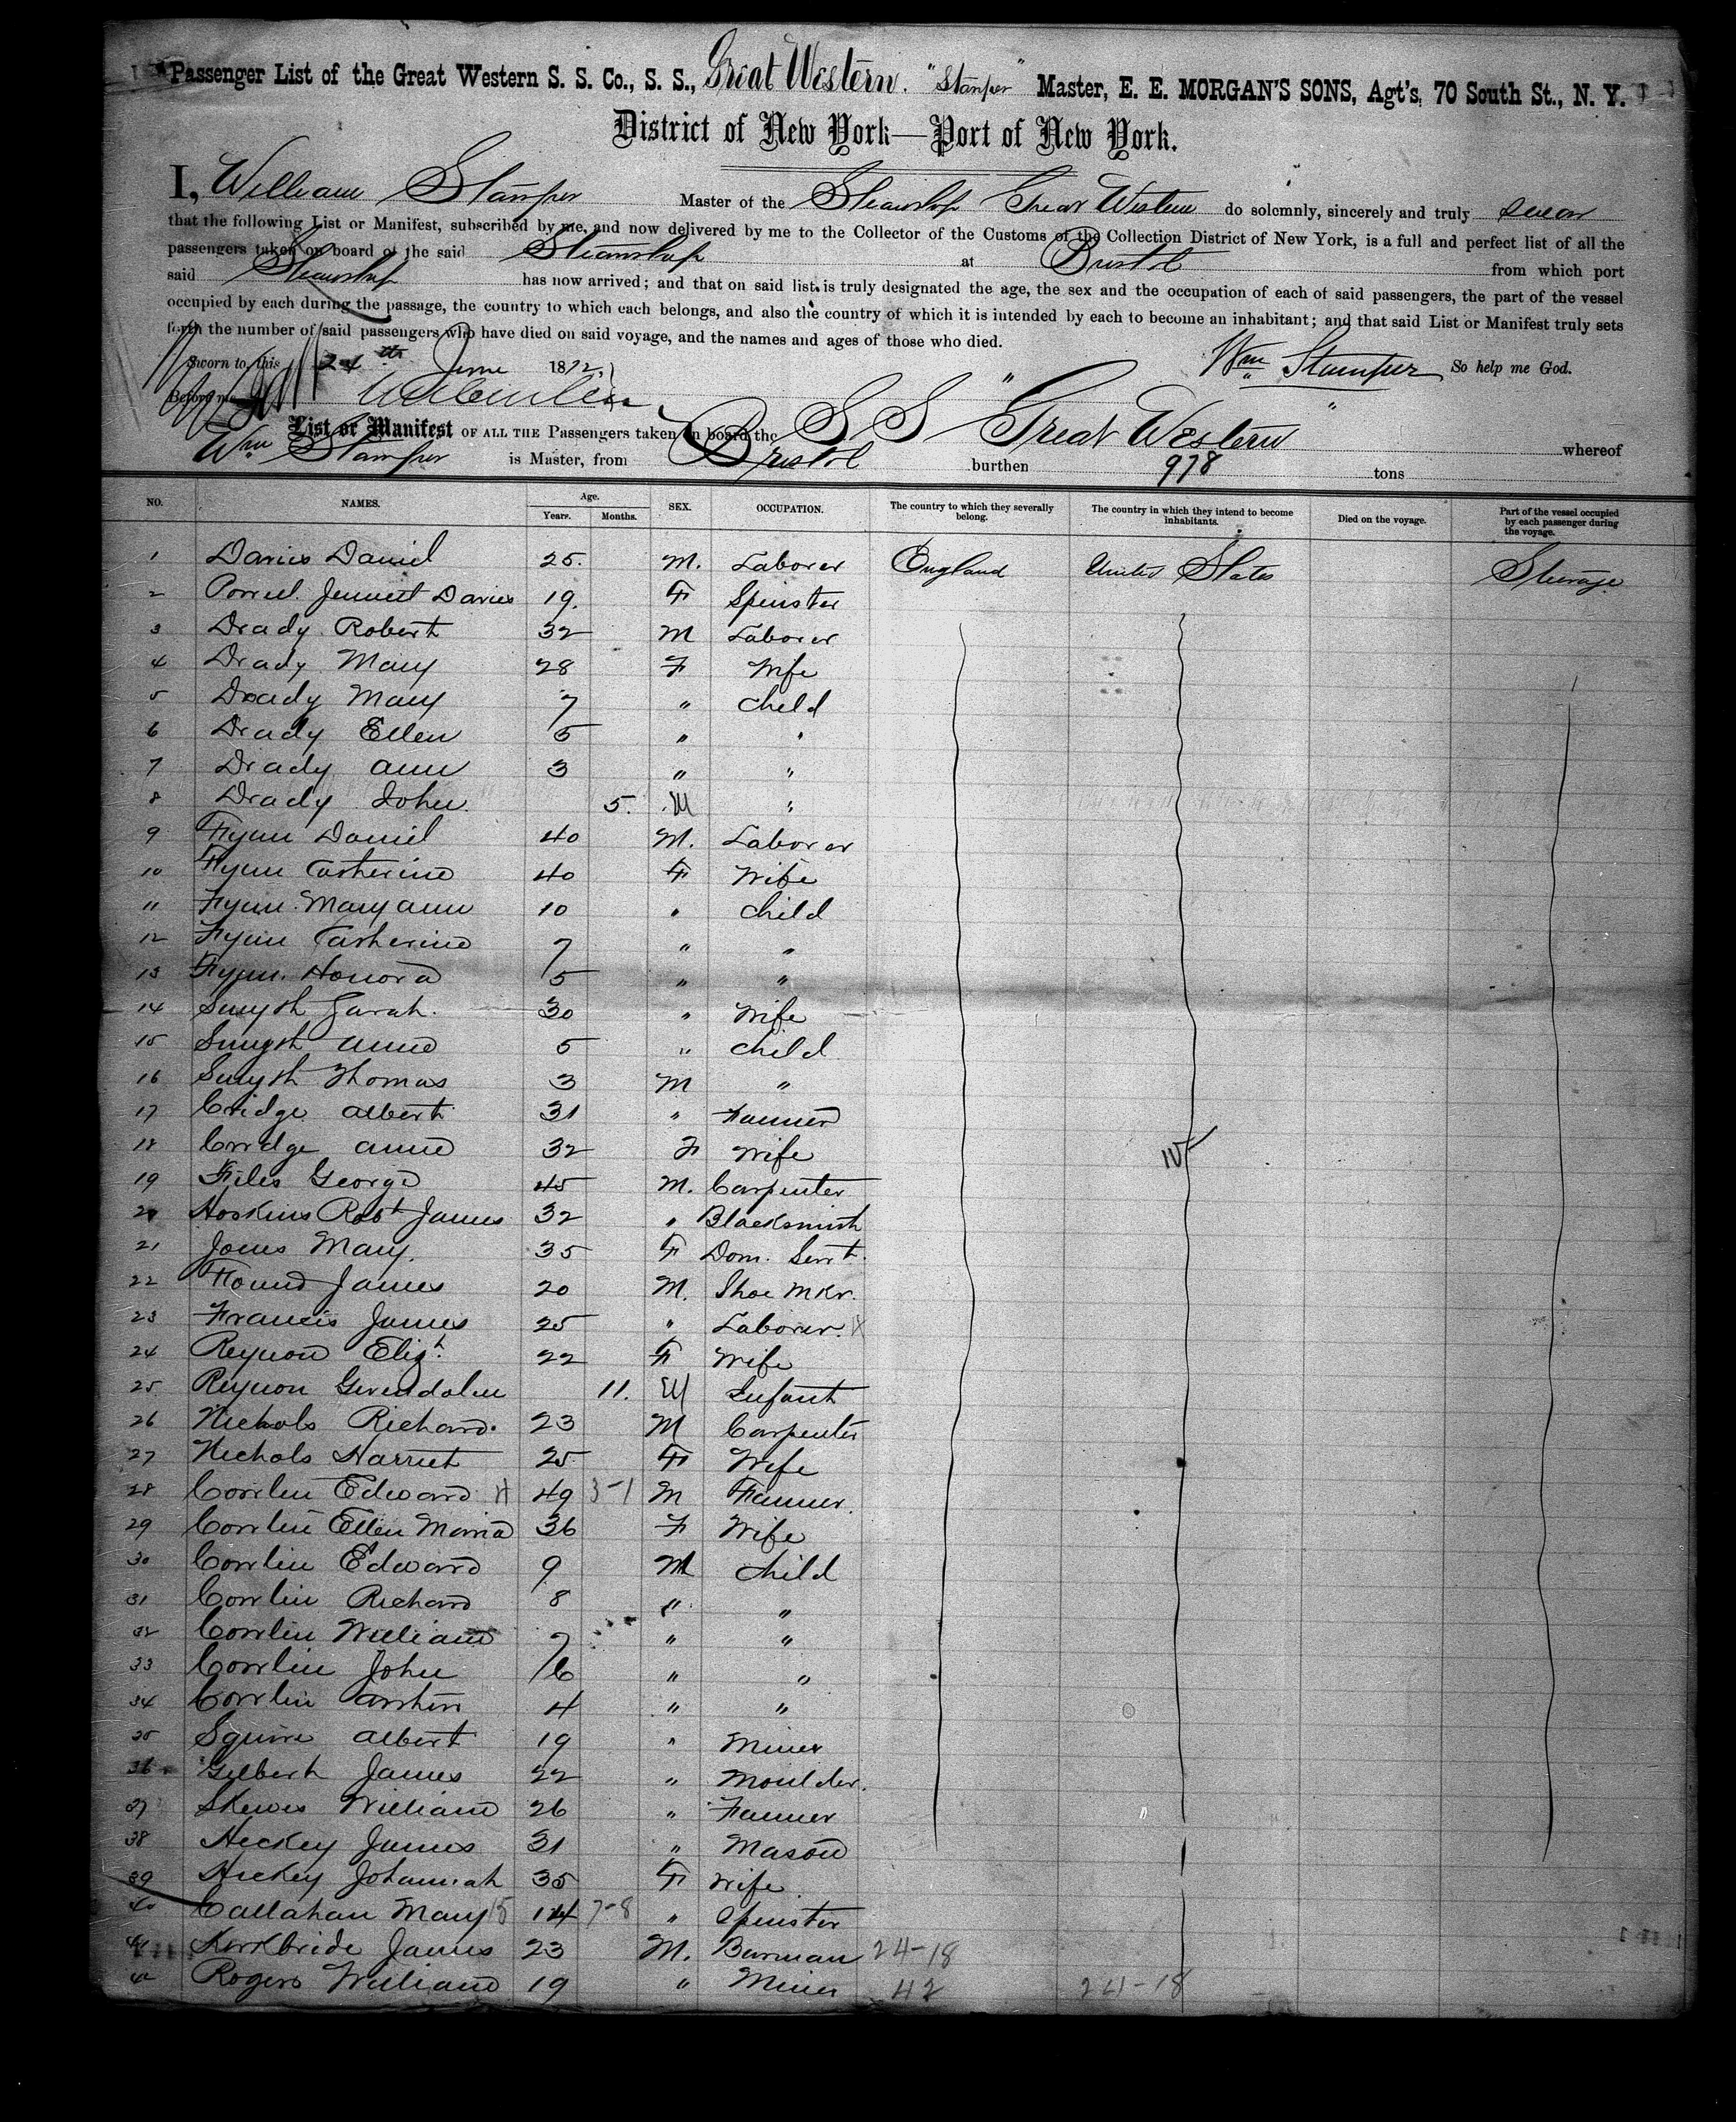 Passenger List of the Great Western S. S. Co., S. S., Great Western. "Stamper" Master, E. E. MORGAN'S SONS, Agt's, 70 South St., N. Y.
District of New York—Port of New York.
I, William Stamper Master of the Steamship Great Western do solemnly, sincerely and truly swear
that the following List or Manifest, subscribed by me, and now delivered by me to the Collector of the Customs of the Collection District of New York, is a full and perfect list of all the
passengers taken on board of the said Steamship at Bristol from which port
said Steamship has now arrived; and that on said list is truly designated the age, the sex and the occupation of each of said passengers, the part of the vessel
occupied by each during the passage, the country to which each belongs, and also the country of which it is intended by each to become an inhabitant; and that said List or Manifest truly sets
forth the number of said passengers who have died on said voyage, and the names and ages of those who died.
Sworn to, this 24th June 1872, Wm Stamper So help me God.
Before me
List or Manifest OF ALL THE Passengers taken on board the S S Great Western whereof
Wm Stamper is Master, from Bristol burthen 978 tons
NO. NAMES. Age. Years. Months. SEX. OCCUPATION. The country to which they severally belong. The country in which they intend to become inhabitants. Died on the voyage. Part of the vessel occupied by each passenger during the voyage.
1 Davies Daniel 25. M. Laborer England United States Steerage
2 Jennet Davies 19. F Spinster
3 Drady Robert 32 M Laborer
4 Drady Mary 28 F Wife
5 Drady Mary 7 " Child
6 Drady Ellen 5 " "
7 Drady Ann 3 " "
8 Drady John 5. M "
9 Flynn Daniel 40 M. Laborer
10 Flynn Catherine 40 F Wife
11 Flynn Mary Ann 10 " Child
12 Flynn Catherine 7 " "
13 Flynn Honora 5 " "
14 Smyth Sarah. 30 " Wife
15 Smyth Anne 5 " Child
16 Smyth Thomas 3 M "
17 Cridge Albert 31 " Farmer
18 Cridge Anne 32 F Wife
19 Files George 45 M. Carpenter
20 Hoskins Robt James 32 " Blacksmith
21 Jones Mary. 35 F Dom. Servt.
22 James 20 M. Shoe Mkr.
23 Francis James 25 " Laborer. X
24 Reynon Elizh. 22 F Wife
25 Reynon Gwendolen 11. M Infant
26 Nichols Richard. 23 M Carpenter
27 Nichols Harriet 25 F Wife
28 Conlin Edward X 49 3-1 M Farmer
29 Conlin Ellen Maria 36 F Wife
30 Conlin Edward 9 M Child
31 Conlin Richard 8 " "
32 Conlin William 7 " "
33 Conlin John 6 " "
34 Conlin Arthur 4 " "
35 Squire Albert 19 " Miner
36 Gilbert James 22 " Moulder.
37 Skewes William 26 " Farmer
38 Hickey James 31 " Mason
39 Hickey Johannah 35 F Wife
40 Callahan Mary 15 14 7-8 " Spinster
41 Kirkbride James 23 M. Barman 24-18
42 Rogers William 19 " Miner 42 24-18